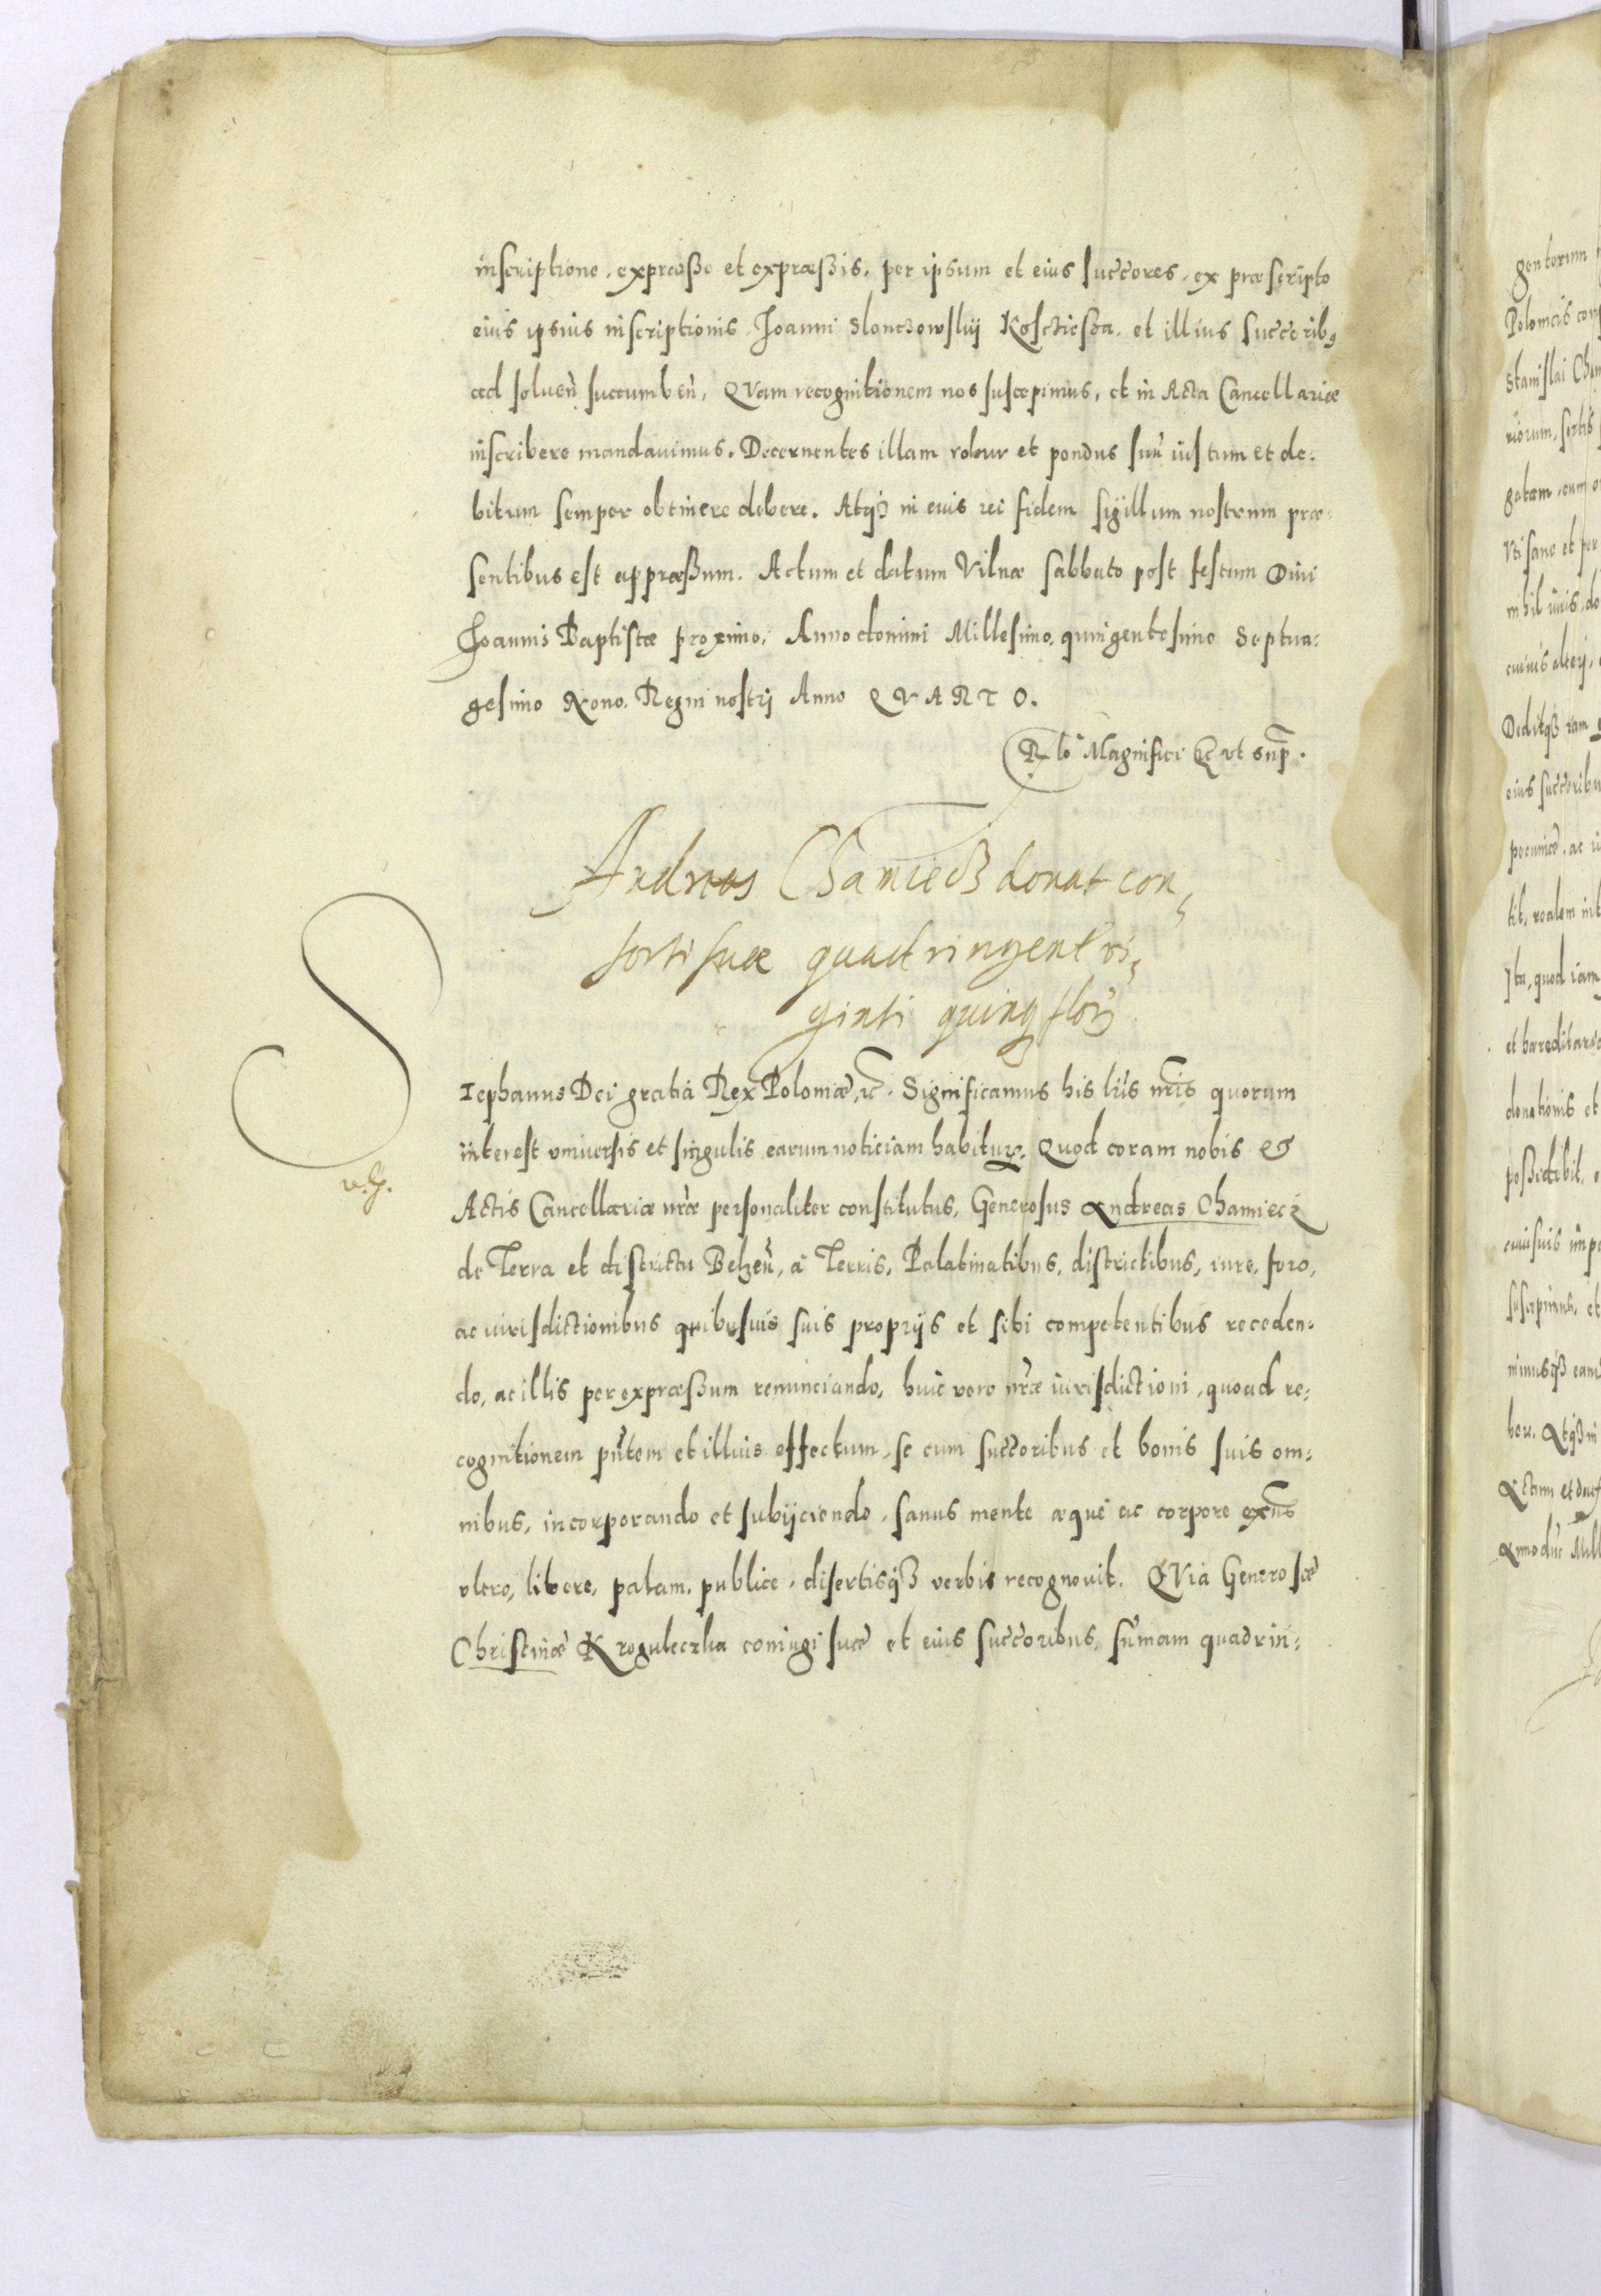 inscriptione, expræsse et expræssis, per ipsum et eius succores, ex præscripto
eius ipsius inscriptionis Joanni Slonczowskij Koscziessa, et illius succorib9
ad soluen̄ succumben̄, QVam recognitionem nos suscepimus, et in Acta Cancellariæ
inscribere mandauimus. Decernentes illam robur et pondus suū iustum et de:
bitum semper obtinere debere. Atqȝ in eius rei fidem sigillum nostrum præ:
sentibus est appræssum. Actum et datum Vilnæ sabbato post festum Diui
Joannis Baptistæ proximo, Anno domini Millesimo, quingentesimo Septua:
gesimo Nono. Regni nostrj Anno QVARTO.
Rlo Magnifici &c vt sup̄.
Andreas Chamiecz donat con,
sorti suæ quadringent vi,
ginti quinq flor
Stephanus Dei gratia Rex Poloniæ, &c. Significamus his lr̄is nr̄is quorum
interest vniuersis et singulis earum noticiam habitur. Quod coram nobis et
v. G.
Actis Cancellariæ nr̄æ personaliter constitutus, Generosus Andreas Chamiecz
de Terra et districtu Belzeñ, a Terris, Palatinatibus, districtibus, iure, foro,
ac iurisdictionibus quibusuis suis proprijs et sibi competentibus receden:
do, ac illis per expræssum renunciando, huic vero nr̄æ iurisdictioni, quoad re:
cognitionem pn̄tem et illius effectum, se cum succoribus et bonis suis om:
nibus, incorporando et subijciendo, sanus mente æque ac corpore exn̄s
vltro, libere, palam, publice, disertisqȝ verbis recognouit. QVia Generosæ
Christinæ Kroguleczka coniugi suæ et eius succoribus, sum̄am quadrin:
gentorum
Polonicis
Stanislai
riorum, sortis
gatam, cum
Vti sane et per
nihil iuris, do
cuiuis alterj,
Deditqȝ iam
eius succoribu
pecuniæ, ac
tit, realem
Ita, quod iam
et hæreditarie
donationis et
possidebit,
cuiusuis
suscepimus, et
nimusqȝ eam
bere. Atqȝ in
Actum et dat
Anno dn̄i Mill